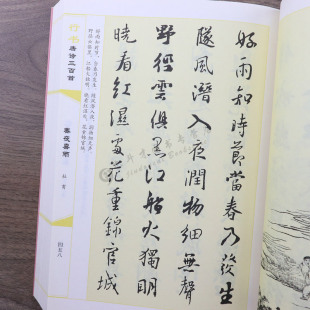 好雨知時節當春乃發生
隨風潛入夜潤物細無聲
野徑雲俱黑江船火獨明
曉看紅濕處花重錦官城
唐诗三百首
春夜喜雨
杜甫
四五八